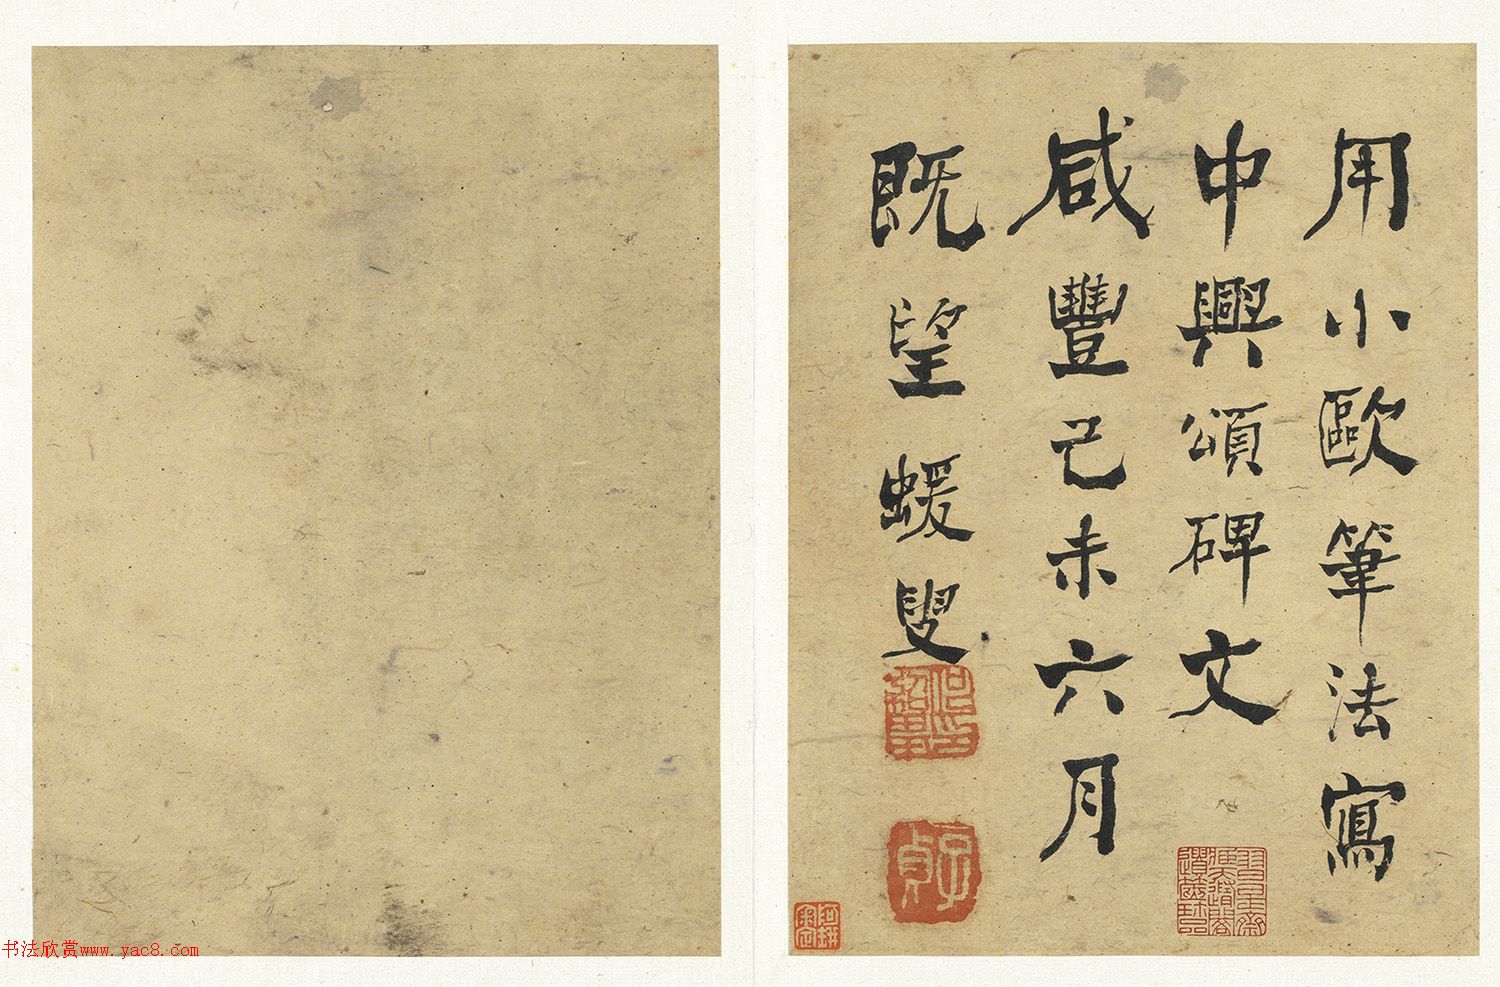 用小歐筆法寫
中興頌碑文
咸豐己未六月
既望蝯叟
子貞
书法欣赏www.yac8.com